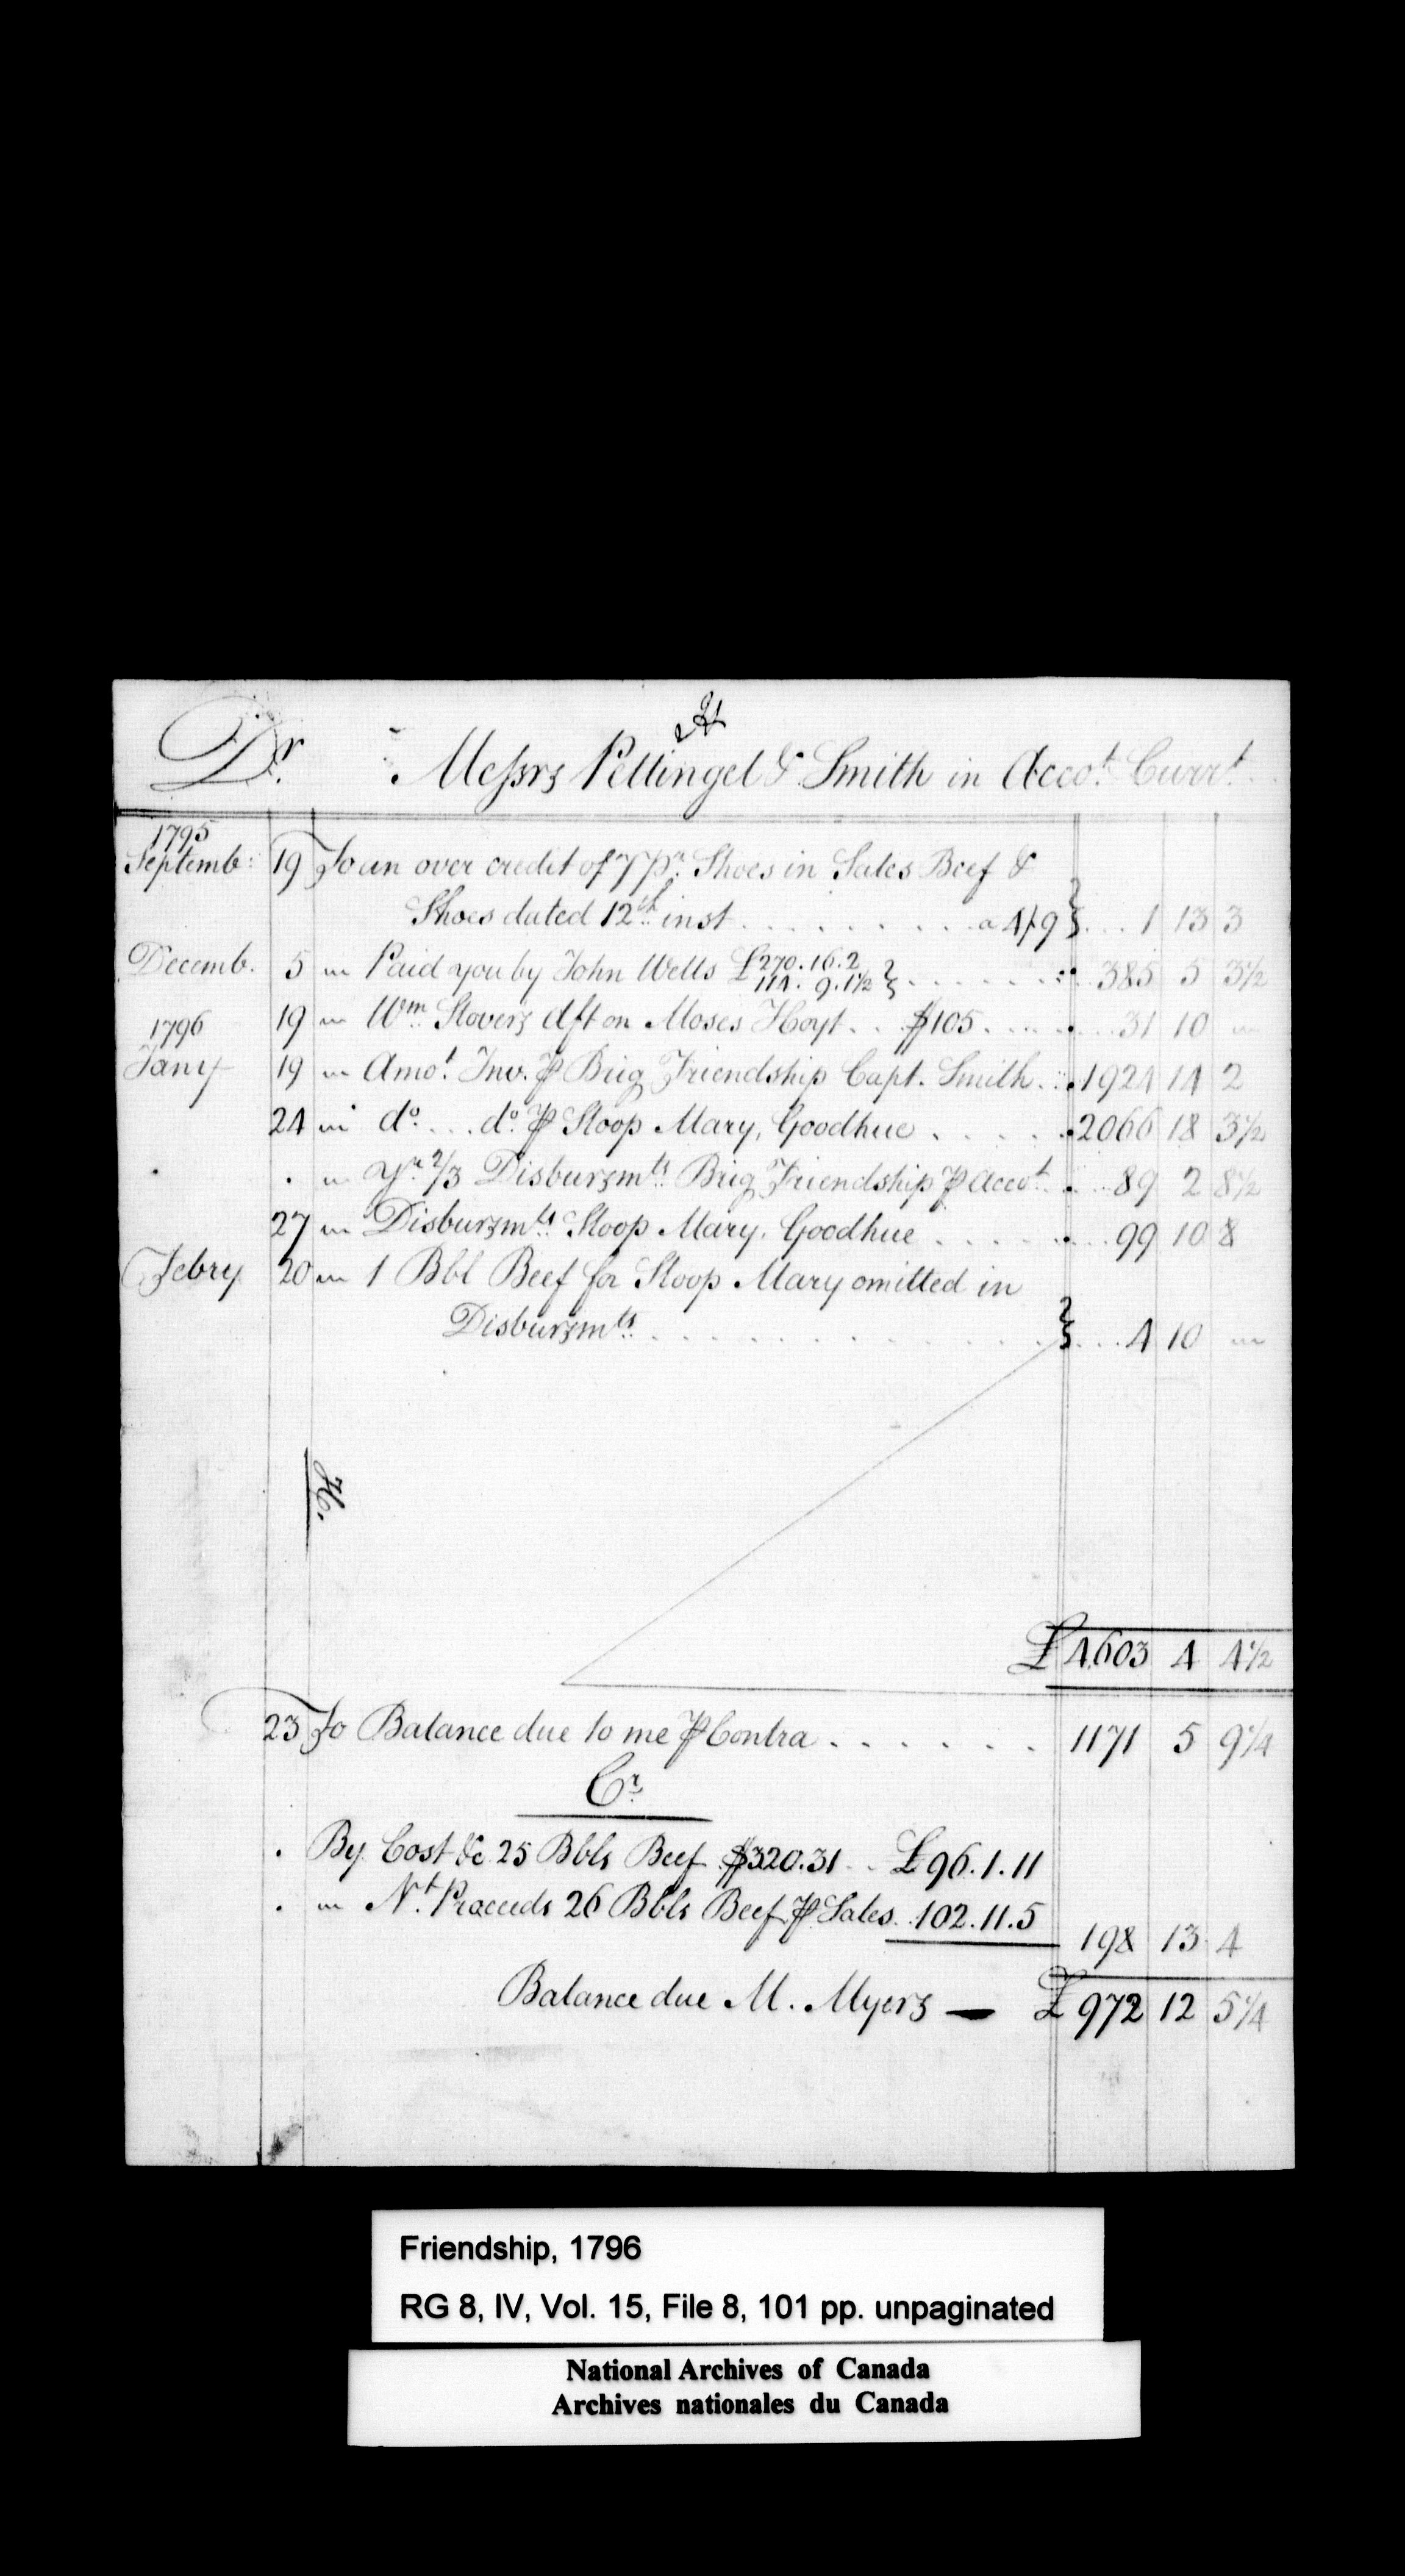 H
Dr. Messrs Pettingel & Smith in Accot. Currt.
1795
Septemb: 19 To an over credit of 7 pr. Shoes in Sales Beef &
Shoes dated 12th inst . . . . . . . . . a 4/9 } . . . 1 13 3
Decemb. 5 " Paid you by John Wells £270.16.2
114. 9.1½ } . . . . . . 385 5 3½
19 " Wm. Stovers dft on Moses Hoyt . . $105 . . . . 31 10 "
1796
Jany 19 " Amot. Inv. ⅌ Brig Friendship Capt. Smith . . 1924 14 2
24 " do. . . . do. ⅌ Sloop Mary, Goodhue . . . . . 2066 18 3½
. " Yr. 2/3 Disbursmts. Brig Friendship ⅌ Accot. . . 89 2 8½
27 " Disbursmts. Sloop Mary. Goodhue . . . . . . . 99 10 8
Febry 20 " 1 Bbl Beef for Sloop Mary omitted in
Disbursmts. . . . . . . . . . . . . . } . . . 4 10 "
H.
£4603 4 4½
23 To Balance due to me ⅌ Contra . . . . . . . 1171 5 9¼
Cr.
. By Cost &c 25 Bbls Beef $320.31 . . £96.1.11
. " Nt. Proceeds 26 Bbls Beef ⅌ Sales . . 102.11.5
198 13 4
Balance due M. Myers — £972 12 5¼
Friendship, 1796
RG 8, IV, Vol. 15, File 8, 101 pp. unpaginated
National Archives of Canada
Archives nationales du Canada